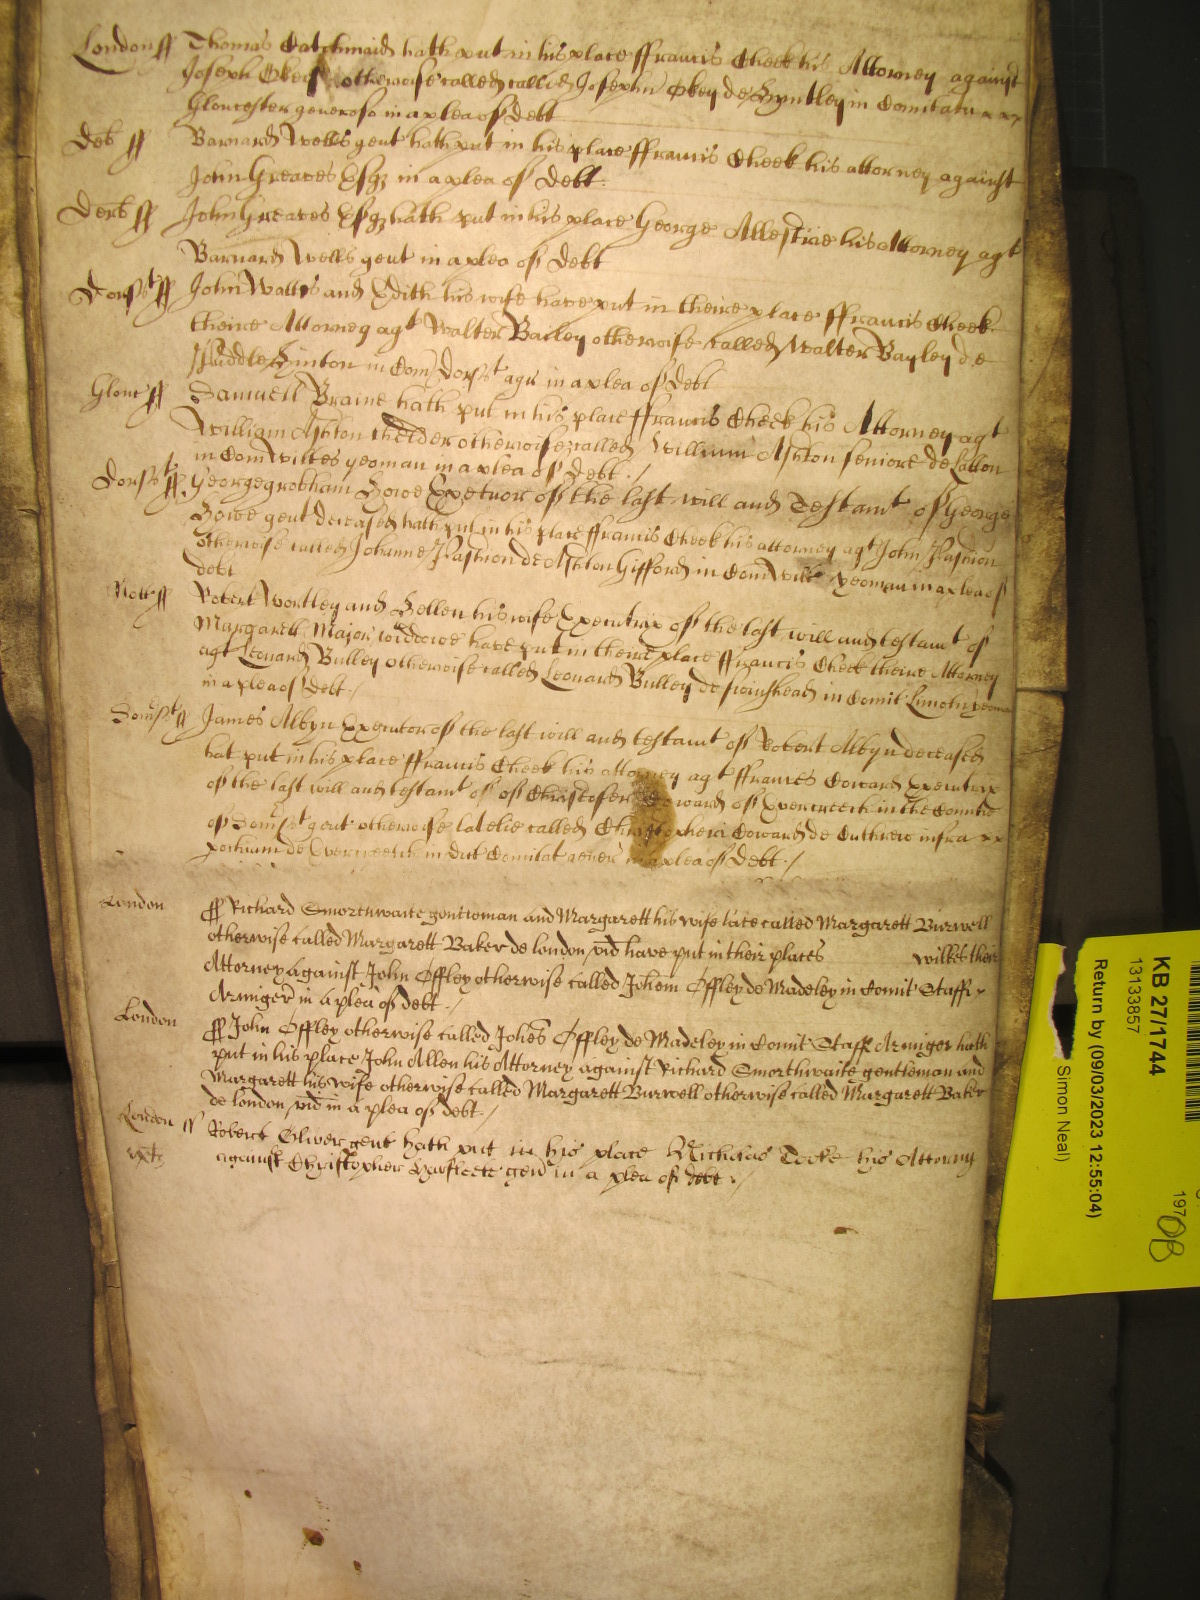 London ss Thomas Catchmaid hath put in his place ffrancis Cheek his Attorney against
Joseph Okey otherwise called called Josephu Okey de Hyntley in Comitatu xxx
Gloucester generoso in a plea of debt
Deb ss Barnard Wells gent hath put in his place ffrancis Cheek his attorney against
John Greaves Esqz in a plea of Debt.
Derb ss John Greaves Esqz hath put in his place George Allestrie his Attorney agt
Barnard Wells gent in a plea of Debt
Dorsst ss John Wallis and Edith his wife have put in theire place ffrancis Cheek
theire Attorney agt Walter Bailey otherwise called Walter Bayley de
Puddle Hinton in Com Dorsst agri in a plea of Debt
Glouc ss Samuell Braine hath put in his place ffrancis Cheek his Attorney agt
William Ashton thelder otherwise called William Ashton seniore de
in Com Wiltes yeoman in a plea of Debt. /
Dorsst ss Georgegrobham Howe Exetuor of the last will and Testamt of George
Howe gent deceased hath put in his place ffrancis Cheek his attorney agt John
otherwise called Johanne de Ashton Gifford in Com Wilts yeoman in a plea of
debt
Nott ss Robert Wortley and Hellen his wife Executrix of the last will and testamt of
Margarett Major widdowe have put in theire place ffrancis Cheek theire Attorney
agt Leonard Bulley otherwise called Leonard Bulley de swinshead in Comit Lincoln yeoman
in a plea of Debt. /
Somsst ss James Albyn Executor of the last will and testamt of Robert Albyn deceased
hat put in his place ffrancis Cheek his attorney agt ffrances Coward Executrix
of the last will and testamt of of Christofer Coward of Evercreech in the Countie
of Somsst gent otherwise latelie called Christopheri Coward de infra xx
de Evercreech in dict Comitat gener in a plea of Debt. /
London ss Richard Smorthwaite gentleman and Margarett his wife late called Margarett Burwell
otherwise called Margarett Baker de london vid have put in their places wilkes their
Attorney against John Offley otherwise called Johem Offley de Madeley in Comit Staff
Armiger in a plea of debt. /
London ss John Offley otherwise called Johes Offley de Madeley in Comit Staff Armiger hath
put in his place John Allen his Attorney against Richard Smorthwaite gentleman and
Margarett his wife otherwise called Margarett Burwell otherwise called Margarett Baker
de london vid in a plea of debt /
London ss Robert Oliver gent hath put in his place Nicholas Tooke his Attorny
against Christopher gen in a plea of debt. /
KB 27/1744
13133857
Return by (09/03/2023 12:55:04)
Simon Neal)
197